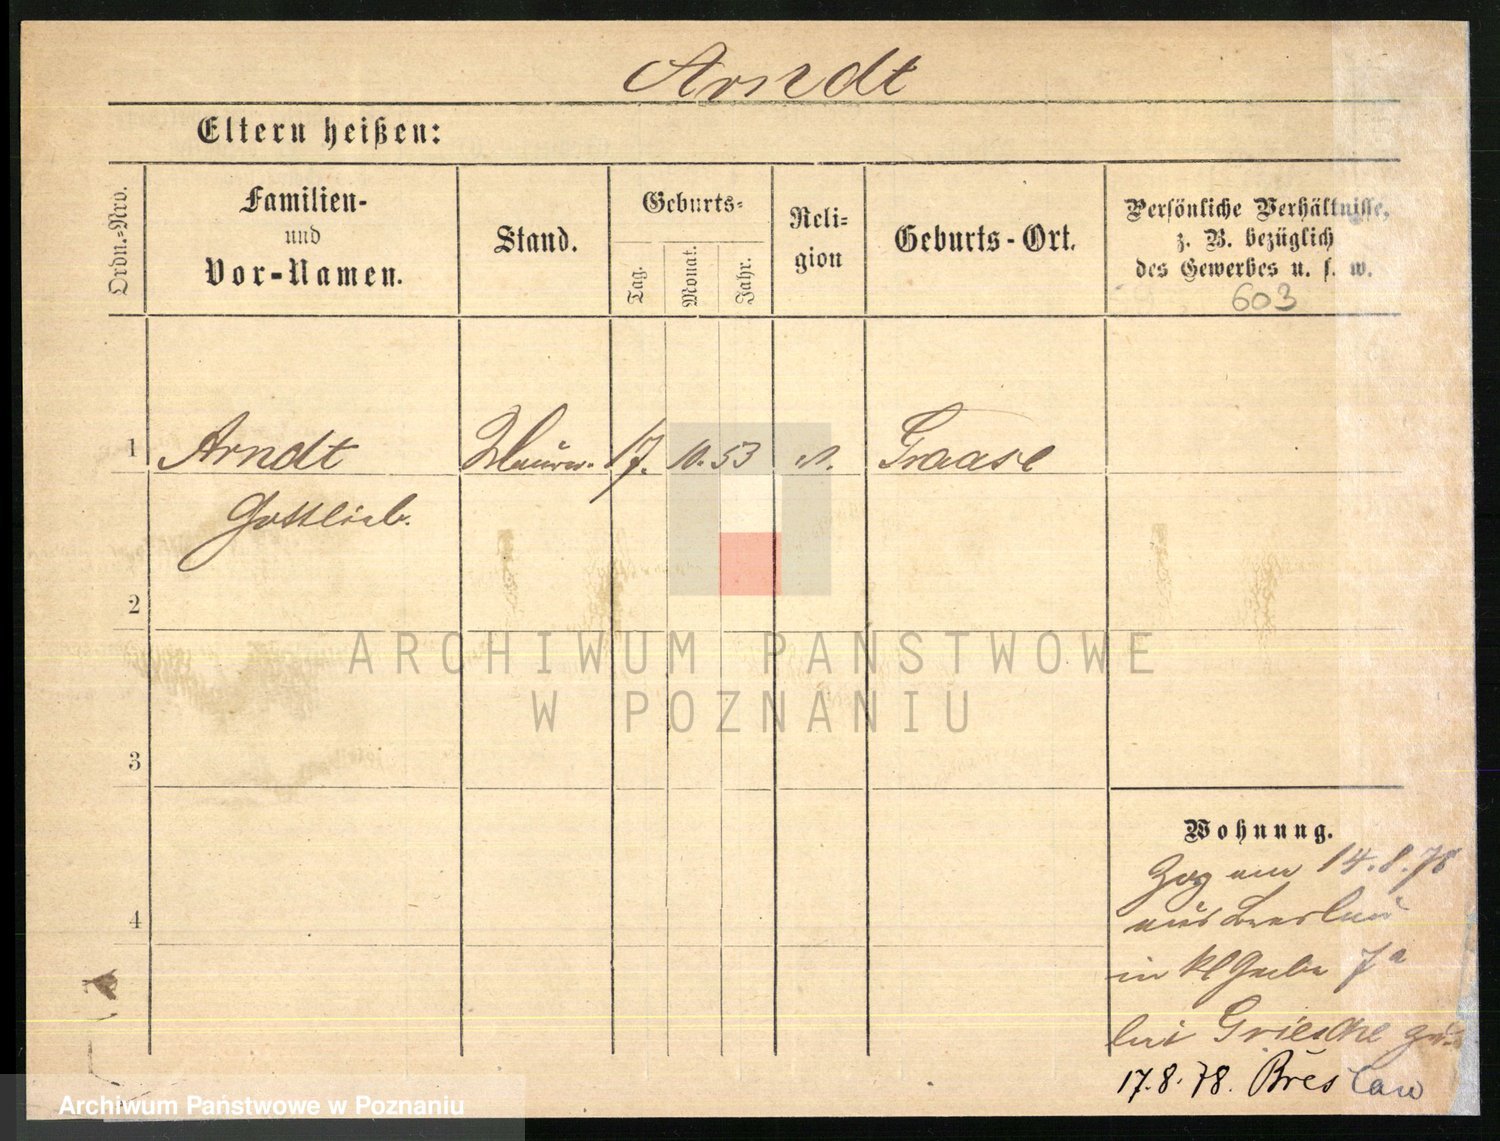 Arndt
Eltern heißen:
Ordn.-Nro.
Familien-
und
Vor-Namen.
Stand.
Geburts-
Tag.
Monat.
Jahr.
Reli-
gion
Geburts-Ort.
Persönliche Verhältnisse,
z. B. bezüglich
des Gewerbes u. s. w.
603
1 Arndt Maurer. 17. 10. 53 Graase
Gottlieb.
2
ARCHIWUM PAŃSTWOWE
W POZNANIU
3
Wohnung.
Zog am 14.8.78
aus Breslau
4
in 7a
bei Grieschke
17.8.78. Breslau
Archiwum Państwowe w Poznaniu